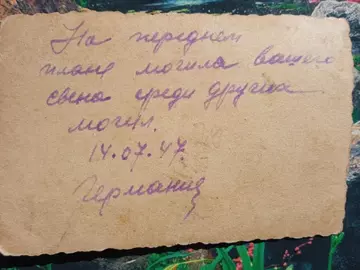 На переднем
плане могила вашего
свена среди других
могил.
14.07.47.
Германия